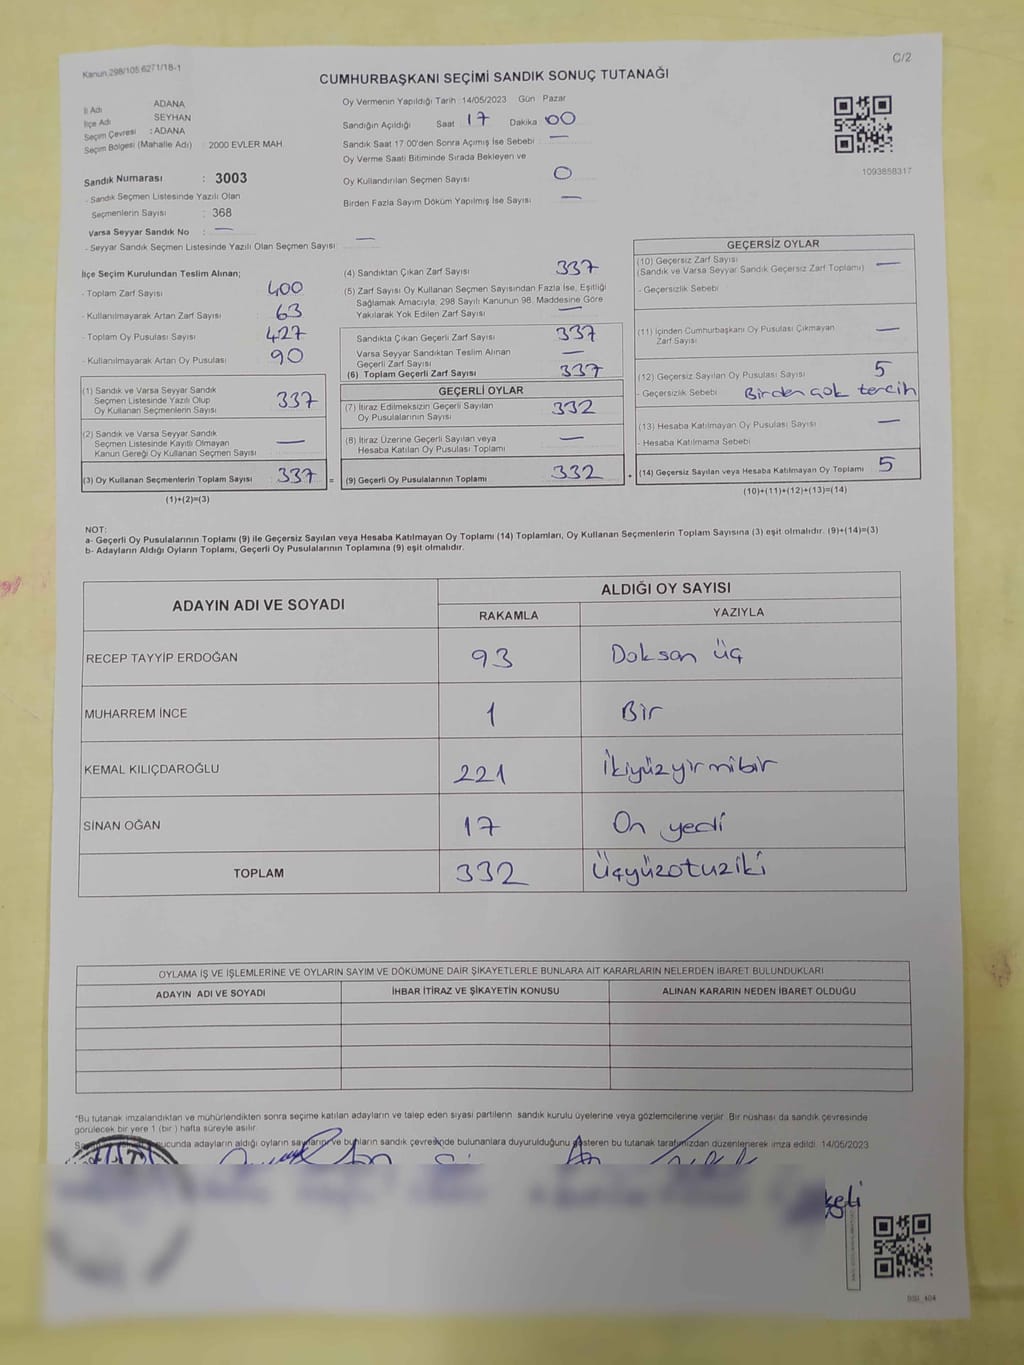 Kanun 298/105 6271/18-1
C/2
CUMHURBAŞKANI SEÇİMİ SANDIK SONUÇ TUTANAĞI
İl Adı ADANA
İlçe Adı SEYHAN
Seçim Çevresi : ADANA
Seçim Bölgesi (Mahalle Adı) : 2000 EVLER MAH.
Sandık Numarası : 3003
- Sandık Seçmen Listesinde Yazılı Olan
Seçmenlerin Sayısı : 368
Varsa Seyyar Sandık No : —
- Seyyar Sandık Seçmen Listesinde Yazılı Olan Seçmen Sayısı : —
Oy Vermenin Yapıldığı Tarih : 14/05/2023 Gün : Pazar
Sandığın Açıldığı Saat : 17 Dakika : 00
Sandık Saat 17:00'den Sonra Açımış İse Sebebi : —
Oy Verme Saati Bitiminde Sırada Bekleyen ve
Oy Kullandırılan Seçmen Sayısı 0
Birden Fazla Sayım Döküm Yapılmış İse Sayısı —
1093858317
İlçe Seçim Kurulundan Teslim Alınan;
- Toplam Zarf Sayısı 400
- Kullanılmayarak Artan Zarf Sayısı : 63
- Toplam Oy Pusulası Sayısı 427
- Kullanılmayarak Artan Oy Pusulası : 90
(1) Sandık ve Varsa Seyyar Sandık
Seçmen Listesinde Yazılı Olup
Oy Kullanan Seçmenlerin Sayısı 337
(2) Sandık ve Varsa Seyyar Sandık
Seçmen Listesinde Kayıtlı Olmayan
Kanun Gereği Oy Kullanan Seçmen Sayısı : —
(3) Oy Kullanan Seçmenlerin Toplam Sayısı : 337 =
(1)+(2)=(3)
(4) Sandıktan Çıkan Zarf Sayısı 337
(5) Zarf Sayısı Oy Kullanan Seçmen Sayısından Fazla İse, Eşitliği
Sağlamak Amacıyla, 298 Sayılı Kanunun 98. Maddesine Göre
Yakılarak Yok Edilen Zarf Sayısı —
Sandıkta Çıkan Geçerli Zarf Sayısı 337
Varsa Seyyar Sandıktan Teslim Alınan
Geçerli Zarf Sayısı —
(6) Toplam Geçerli Zarf Sayısı 337
GEÇERLİ OYLAR
(7) İtiraz Edilmeksizin Geçerli Sayılan
Oy Pusulalarının Sayısı 332
(8) İtiraz Üzerine Geçerli Sayılan veya
Hesaba Katılan Oy Pusulaları Toplamı —
(9) Geçerli Oy Pusulalarının Toplamı 332 +
GEÇERSİZ OYLAR
(10) Geçersiz Zarf Sayısı
(Sandık ve Varsa Seyyar Sandık Geçersiz Zarf Toplamı) —
- Geçersizlik Sebebi
(11) İçinden Cumhurbaşkanı Oy Pusulası Çıkmayan
Zarf Sayısı —
(12) Geçersiz Sayılan Oy Pusulası Sayısı 5
- Geçersizlik Sebebi Birden çok tercih
(13) Hesaba Katılmayan Oy Pusulası Sayısı —
- Hesaba Katılmama Sebebi
(14) Geçersiz Sayılan veya Hesaba Katılmayan Oy Toplamı 5
(10)+(11)+(12)+(13)=(14)
NOT:
a- Geçerli Oy Pusulalarının Toplamı (9) ile Geçersiz Sayılan veya Hesaba Katılmayan Oy Toplamı (14) Toplamları, Oy Kullanan Seçmenlerin Toplam Sayısına (3) eşit olmalıdır. (9)+(14)=(3)
b- Adayların Aldığı Oyların Toplamı, Geçerli Oy Pusulalarının Toplamına (9) eşit olmalıdır.
ADAYIN ADI VE SOYADI
ALDIĞI OY SAYISI
RAKAMLA YAZIYLA
RECEP TAYYİP ERDOĞAN 93 Doksan üç
MUHARREM İNCE 1 Bir
KEMAL KILIÇDAROĞLU 221 İkiyüzyirmibir
SİNAN OĞAN 17 On yedi
TOPLAM 332 Üçyüzotuziki
OYLAMA İŞ VE İŞLEMLERİNE VE OYLARIN SAYIM VE DÖKÜMÜNE DAİR ŞİKAYETLERLE BUNLARA AİT KARARLARIN NELERDEN İBARET BULUNDUKLARI
ADAYIN ADI VE SOYADI İHBAR İTİRAZ VE ŞİKAYETİN KONUSU ALINAN KARARIN NEDEN İBARET OLDUĞU
*Bu tutanak imzalandıktan ve mühürlendikten sonra seçime katılan adayların ve talep eden siyasi partilerin sandık kurulu üyelerine veya gözlemcilerine verilir. Bir nüshası da sandık çevresinde
görülecek bir yere 1 (bir) hafta süreyle asılır.
ucunda adayların aldığı oyların sayıları ve bunların sandık çevresinde bulunanlara duyurulduğunu gösteren bu tutanak tarafımızdan düzenlenerek imza edildi. 14/05/2023